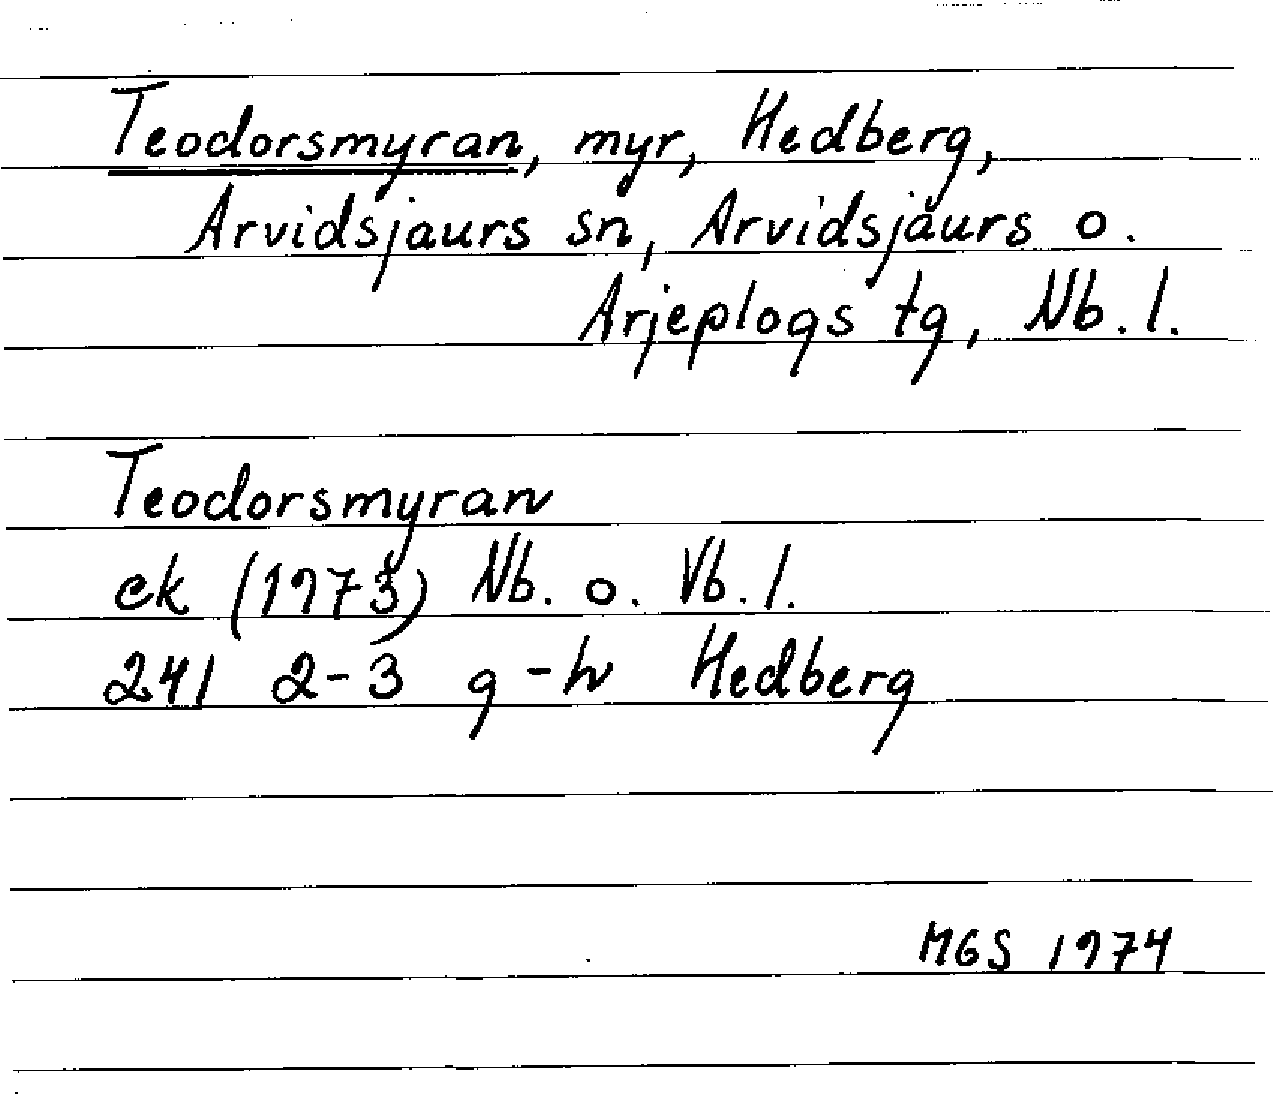 Teodorsmyran, myr, Hedberg,
Arvidsjaurs sn, Arvidsjaurs o.
Arjeplogs tg, Nb. l.
Teodorsmyran
ek (1973) Nb. o. Vb. l.
241 2-3 g-h Hedberg
MGS 1974